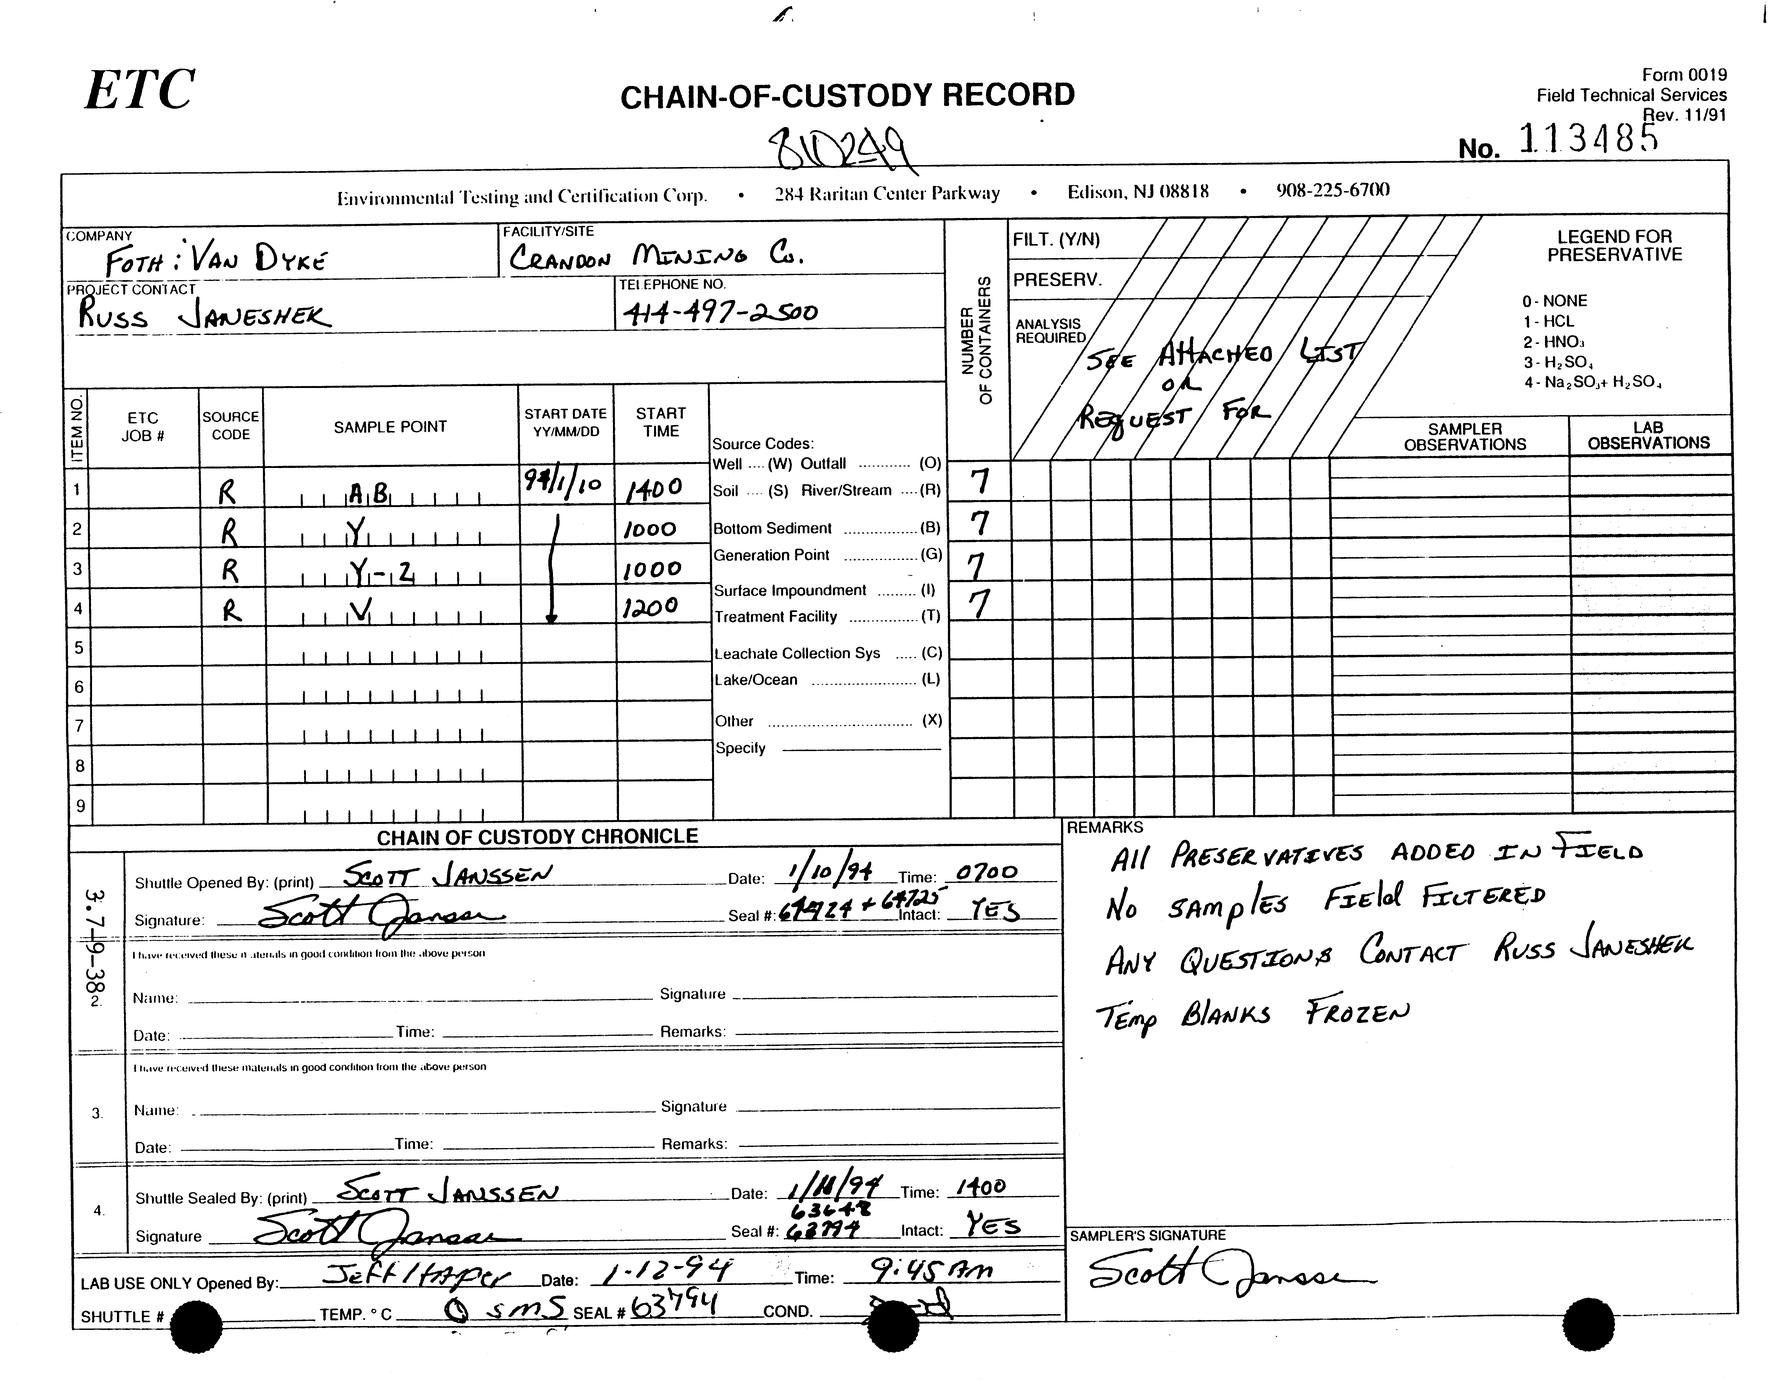 ETC
CHAIN-OF-CUSTODY RECORD
Form 0019
Field Technical Services
Rev. 11/91
No. 113485
810249
Environmental Testing and Certification Corp. • 284 Raritan Center Parkway • Edison, NJ 08818 • 908-225-6700
COMPANY
FOTH : VAN DYKE
FACILITY/SITE
CRANDON MINING CO.
PROJECT CONTACT
RUSS JANESHEK
TELEPHONE NO.
414-497-2500
NUMBER OF CONTAINERS
FILT. (Y/N)
PRESERV.
ANALYSIS REQUIRED
SEE ATTACHED LIST
OR
REQUEST FOR
LEGEND FOR PRESERVATIVE
0 - NONE
1 - HCL
2 - HNO₃
3 - H₂SO₄
4 - Na₂SO₃+ H₂SO₄
ITEM NO. ETC JOB # SOURCE CODE SAMPLE POINT START DATE YY/MM/DD START TIME
SAMPLER OBSERVATIONS LAB OBSERVATIONS
1 R AB 94/1/10 1400 7
2 R Y 1000 7
3 R Y-2 1000 7
4 R V 1200 7
5
6
7
8
9
Source Codes:
Well .... (W) Outfall ........... (O)
Soil .... (S) River/Stream .... (R)
Bottom Sediment ................ (B)
Generation Point ................ (G)
Surface Impoundment ........ (I)
Treatment Facility ............... (T)
Leachate Collection Sys ..... (C)
Lake/Ocean ...................... (L)
Other ............................... (X)
Specify
CHAIN OF CUSTODY CHRONICLE
3.7-9-38
Shuttle Opened By: (print) SCOTT JANSSEN Date: 1/10/94 Time: 0700
Signature: Scott Janssen Seal #: 64724 + 64725 Intact: YES
2.
I have received these materials in good condition from the above person
Name: Signature
Date: Time: Remarks:
3.
I have received these materials in good condition from the above person
Name: Signature
Date: Time: Remarks:
4.
Shuttle Sealed By: (print) SCOTT JANSSEN Date: 1/11/94 Time: 1400
63648
Signature Scott Janssen Seal #: 63794 Intact: YES
LAB USE ONLY Opened By: Jeff Date: 1-12-94 Time: 9:45 AM
SHUTTLE # TEMP. °C 0 sms SEAL # 63794 COND.
REMARKS
All PRESERVATIVES ADDED IN FIELD
No SAMPlES FIEld FILTERED
ANY QUESTIONS CONTACT RUSS JANESHEK
TEmp BlANKS FROZEN
SAMPLER'S SIGNATURE
Scott Janssen